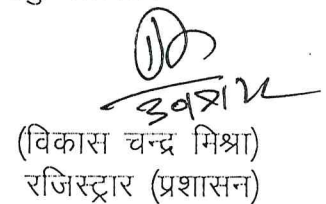 (विकास चन्द्र मिश्रा)
रजिस्ट्रार (प्रशासन)